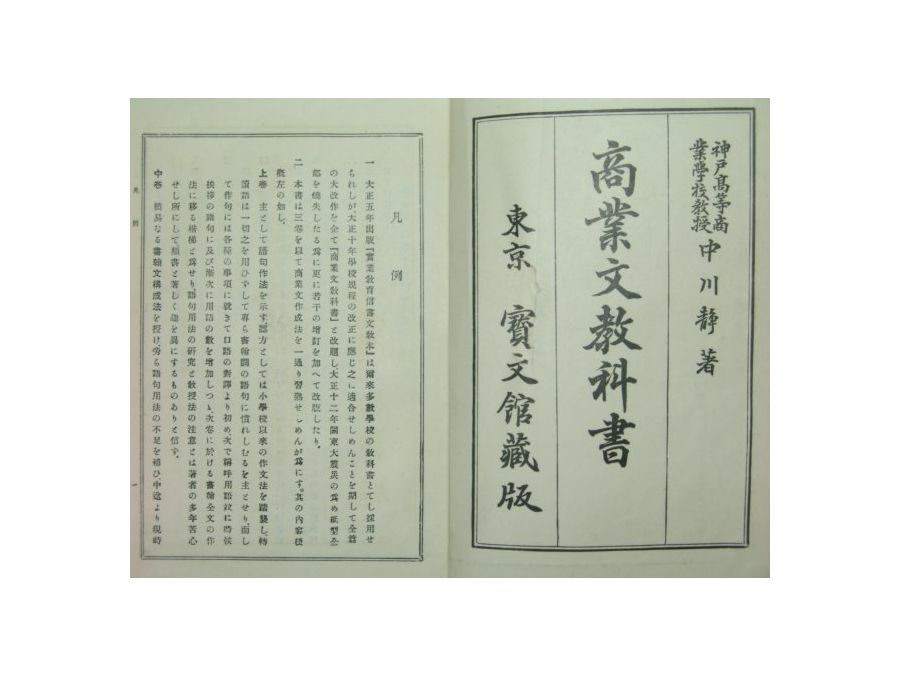 神戸高等商
業學校教授
中川靜著
商業文教科書
東京 寶文館藏版
凡例
一 大正五年出版『實業教育信書文教本』は爾來多數學校の教科書とてし採用せ
られしが、大正十年學校規程の改正に應じ之に適合せしめんことを期して全篇
の大改作を企て『商業文教科書』と改題し、大正十二年關東大震災の爲め紙型全
部を燒失したる爲に更に若干の増訂を加へて改版したり。
二 本書は三卷を以て商業文作成法を一通り習熟せしめんが爲にす。其の內容梗
概左の如し。
上卷 主として語句作法を示す。方としては小學校以來の作文法を踏襲し、特
語は一切之を用ひずして專ら書翰調の語句に慣れしむるを主とせり、而し
て作句には各種の事項に就きて口語の對譯より初め次で稱呼用語竝に時候
挨拶の語句に及び、漸次に用語の數を增加しつゝ、次卷に於ける書翰全文の作
法に移る楷梯と爲せり、語句用法の研究と教授法の注意とは著者の多年苦心
せし所にして類書と著しく趣を異にするものありと信ず。
中卷 簡易なる書翰文構成法を授け、旁ら語句用法の不足を補ひ、中途より現時
凡例
一